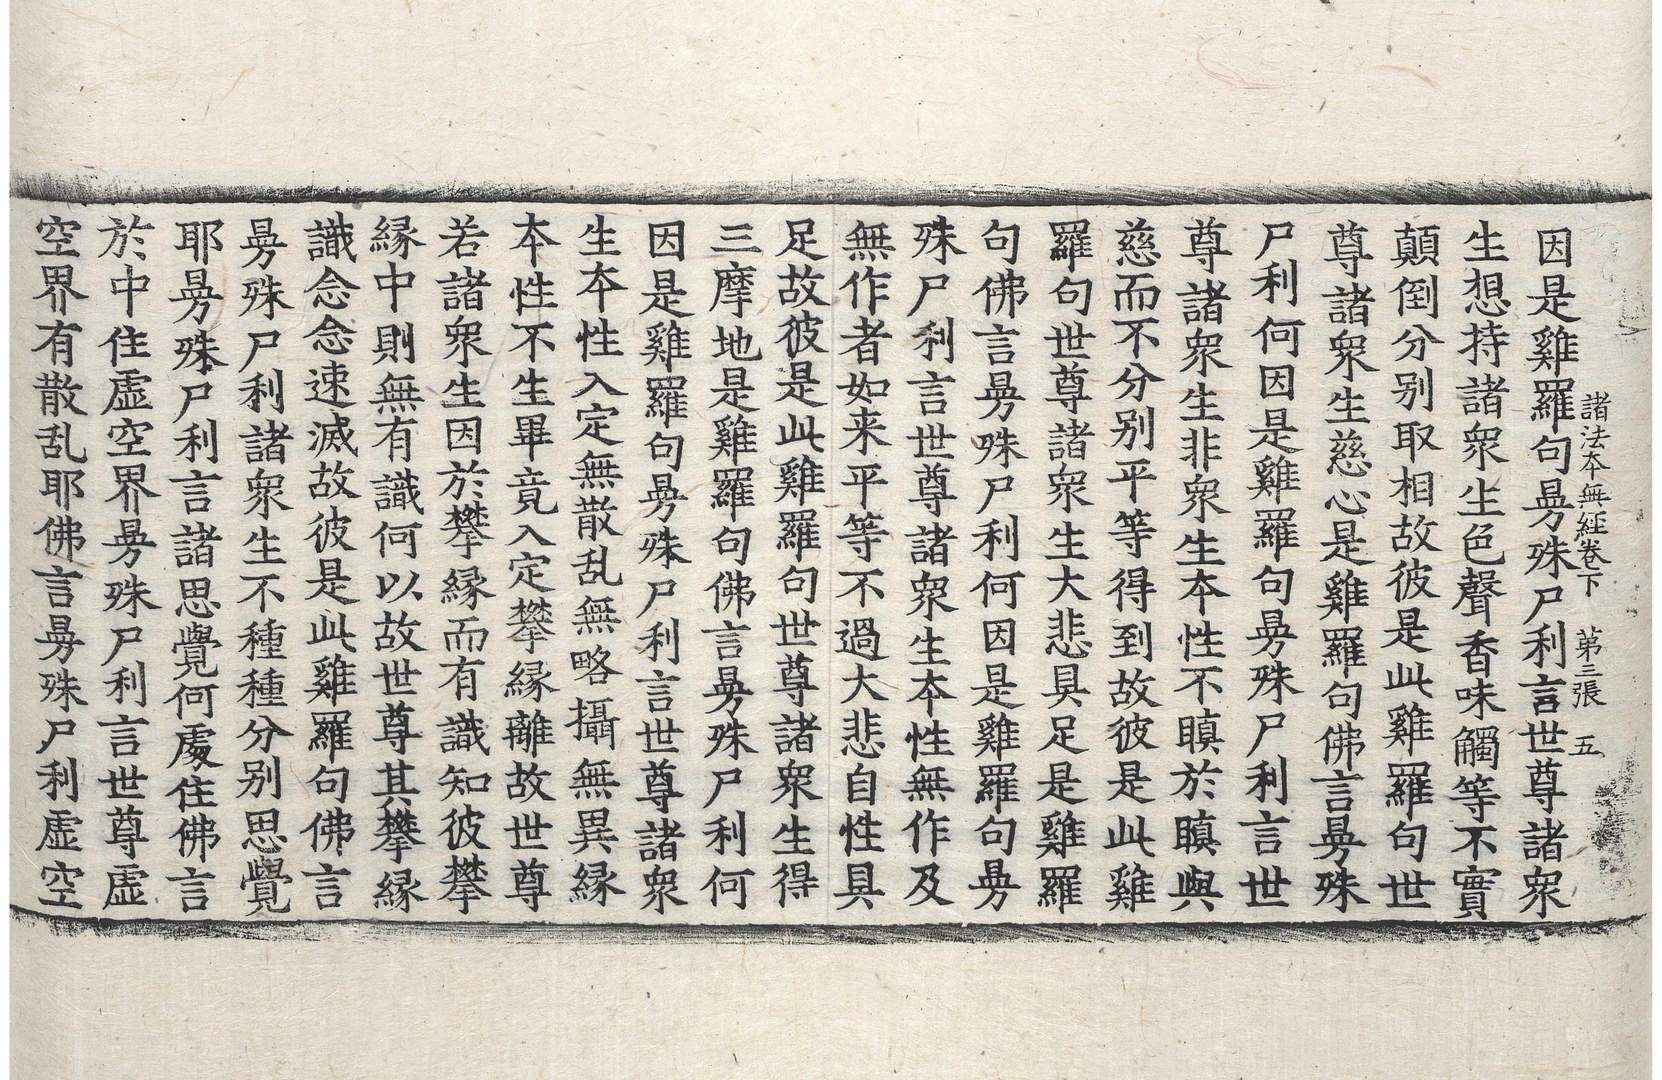 諸法本無經卷下　第三張　五
因是雞羅句㬅殊尸利言世尊諸衆
生想持諸衆生色聲香味觸等不實
顛倒分别取相故彼是此雞羅句世
尊諸衆生慈心是雞羅句佛言㬅殊
尸利何因是雞羅句㬅殊尸利言世
尊諸衆生非衆生本性不瞋於瞋與
慈而不分别平等得到故彼是此雞
羅句世尊諸衆生大悲具足是雞羅
句佛言㬅殊尸利何因是雞羅句㬅
殊尸利言世尊諸衆生本性無作及
無作者如来平等不過大悲自性具
足故彼是此雞羅句世尊諸衆生得
三摩地是雞羅句佛言㬅殊尸利何
因是雞羅句㬅殊尸利言世尊諸衆
生本性入定無散乱無略攝無異緣
本性不生畢竟入定攀緣離故世尊
若諸衆生因於攀緣而有識知彼攀
緣中則無有識何以故世尊其攀緣
識念念速滅故彼是此雞羅句佛言
㬅殊尸利諸衆生不種種分别思覺
耶㬅殊尸利言諸思覺何處住佛言
於中住虛空界㬅殊尸利言世尊虛
空界有散乱耶佛言㬅殊尸利虛空